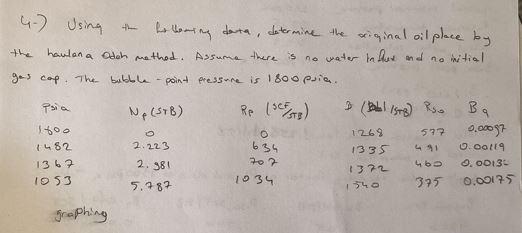 4-) Using the following data, determine the original oil place by
the havlana Odeh method. Assume there is no water Influx and no initial
gas cap. The bubble-point pressure is 1800 psia.
Psia Np (STB) Rp (SCF/STB) B (Bbl/STB) Rso Bg
1800 0 0 1268 577 0.00097
1482 2.223 634 1335 491 0.00119
1367 2.981 707 1372 460 0.0013
1053 5.787 1034 1540 375 0.00175
graphing